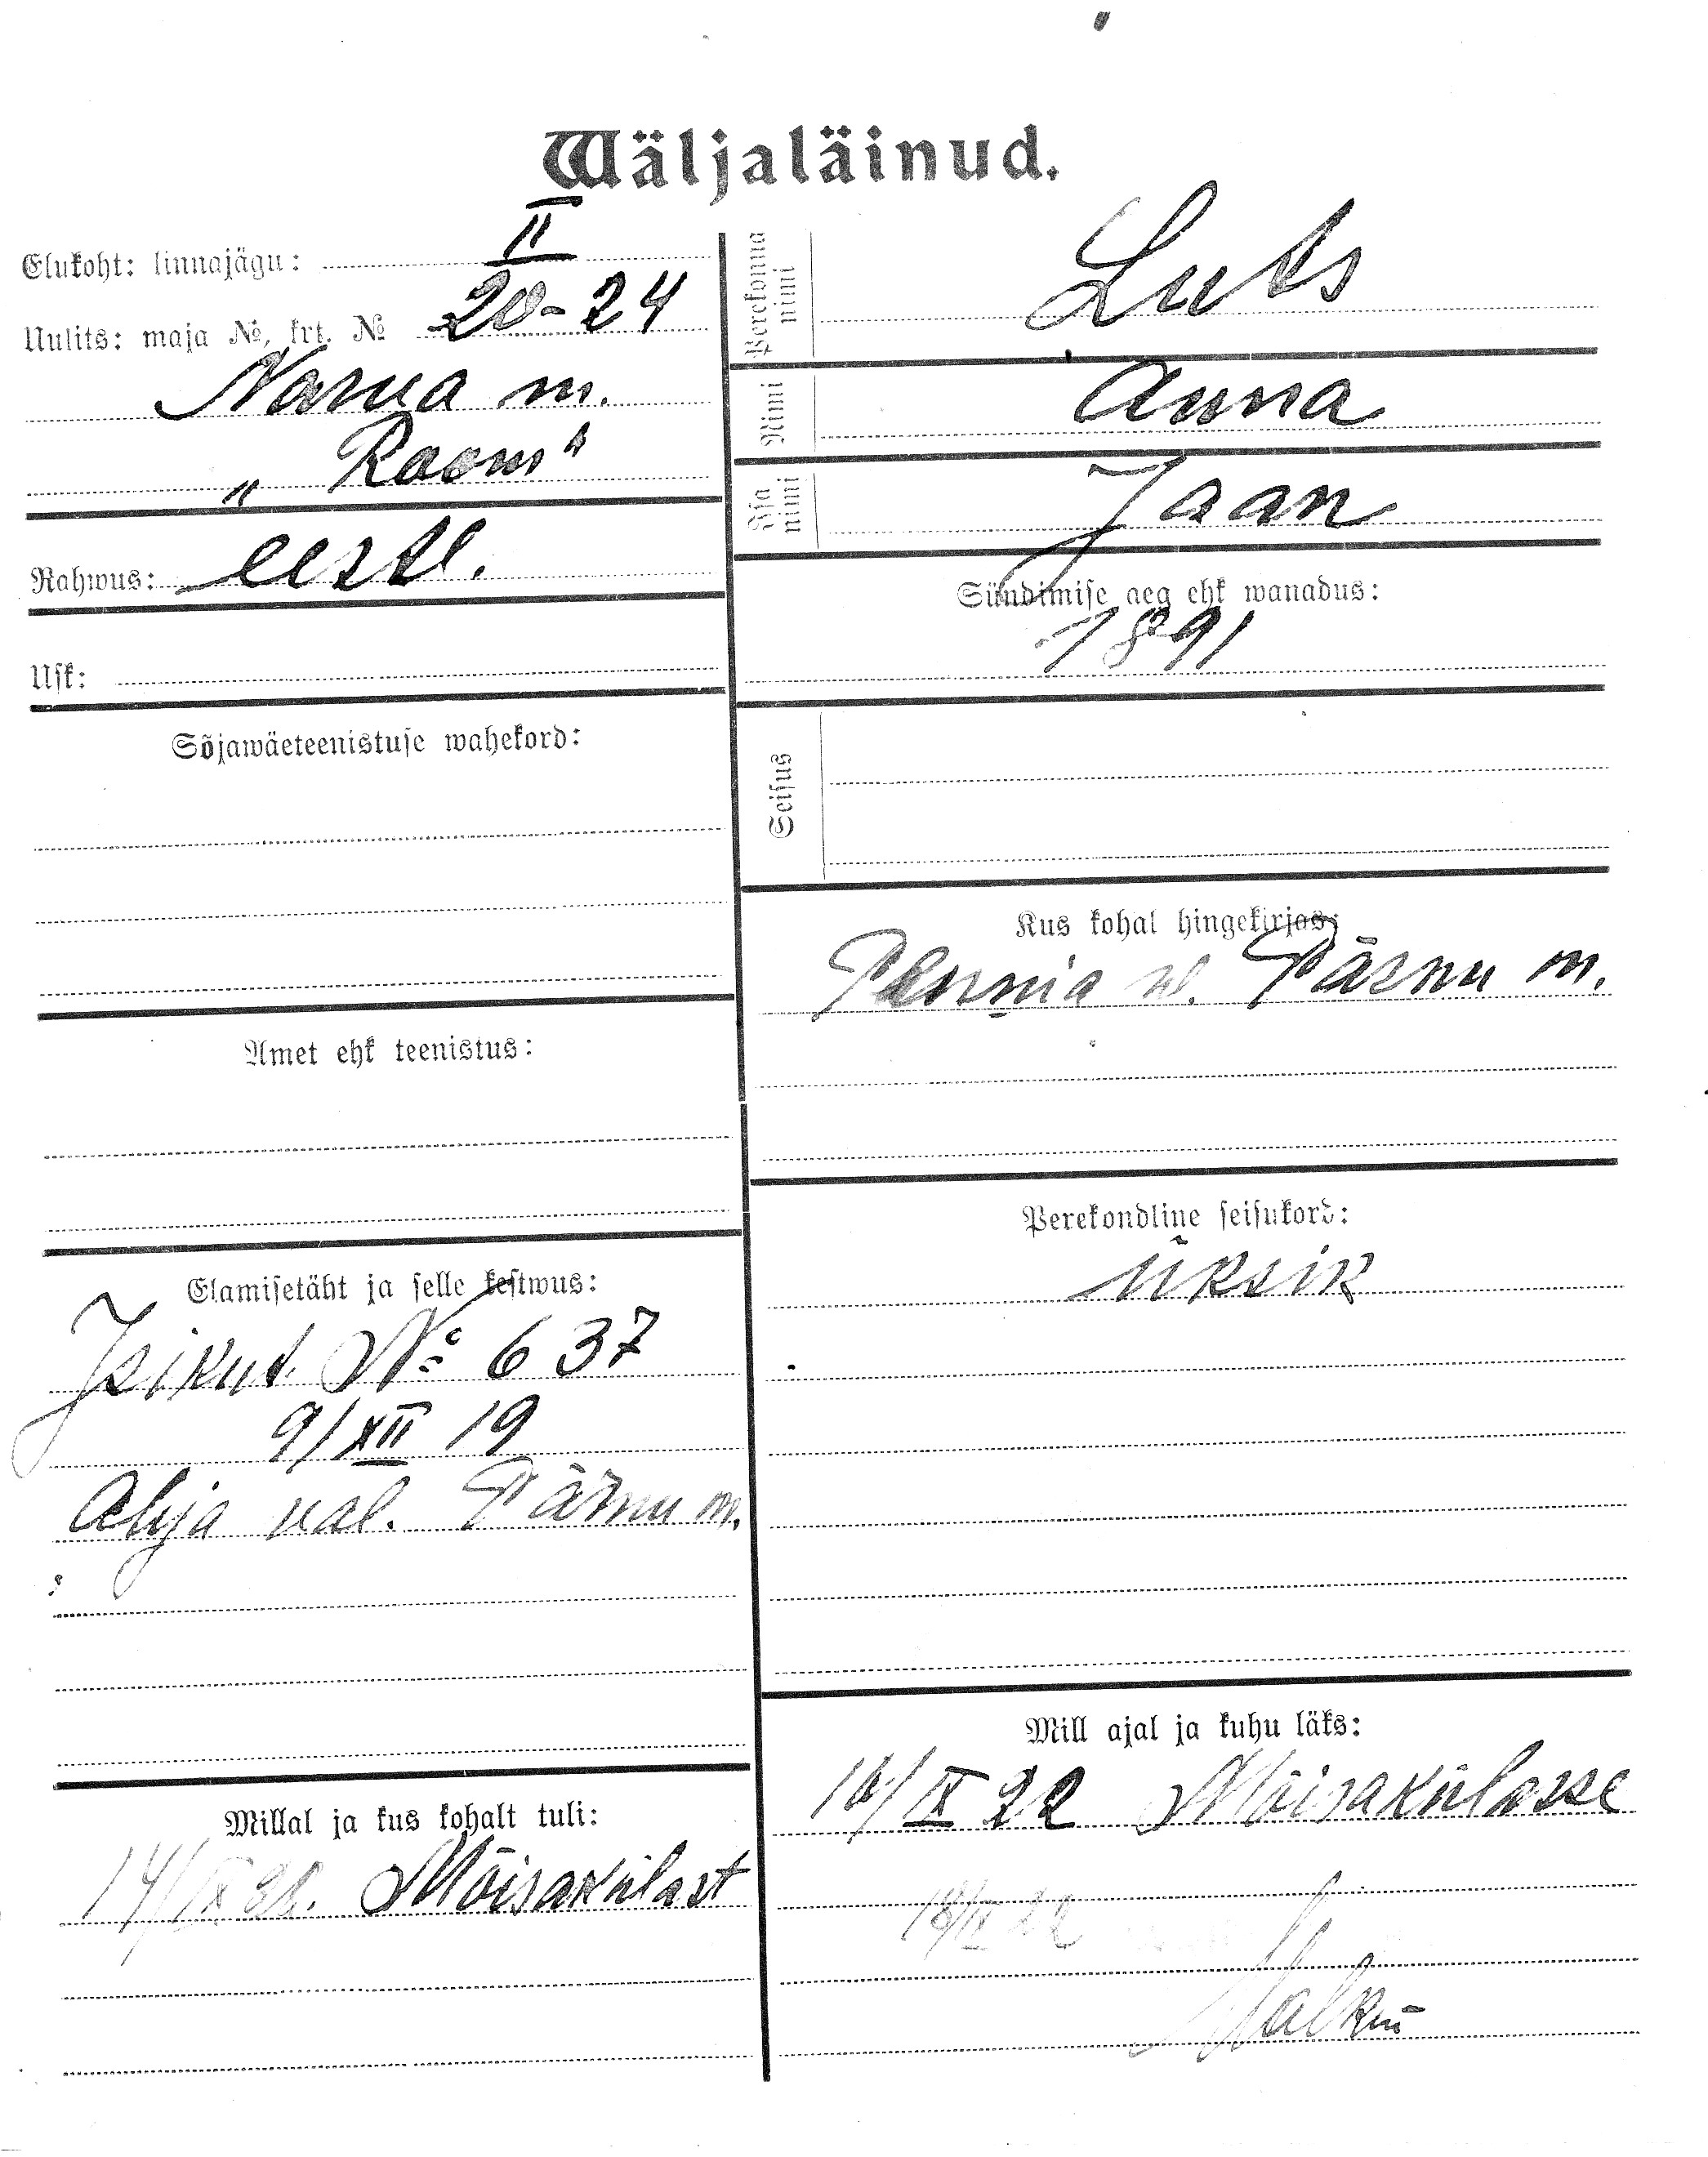 Wäljaläinud.
Elukoht: linnajägu: II
Uulits: maja №, krt. № 20-24
Narva m.
„Room"
Rahwus: eestl.
Usk:
Sõjawäeteenistuse wahekord:
Amet ehk teenistus:
Elamisetäht ja selle kestwus:
Isikut. № 637
9/XII 19
Abja val. Pärnu m.
Millal ja kus kohalt tuli:
14/IX 22. Mõisakülast
Perekonna nimi Luts
Nimi Anna
Isa nimi Jaan
Sündimise aeg ehk wanadus:
1891
Seisus
Kus kohal hingekirjas:
Pärnu m.
Perekondline seisukord:
üksik
Mill ajal ja kuhu läks:
16/IX 22 Mõisakülasse
18/IX 22